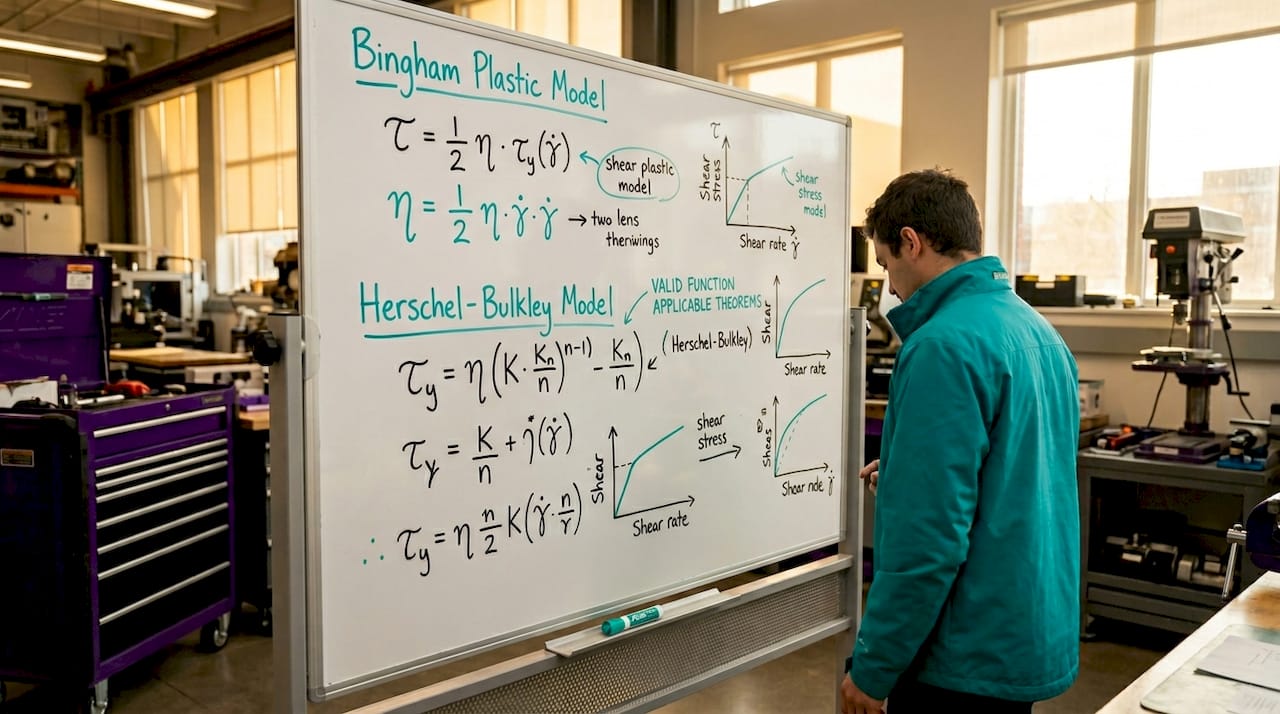 Bingham Plastic Model
τ = 1/2 η · τy(γ̇)
shear plastic
model
η = 1/2 η · γ̇ · γ̇ → two lens
theriwings
τ
Shear
Stress
Shear rate γ̇
shear
stress
model
Herschel-Bulkley Model
VALID FUNCTION
APPLICABLE THEOREMS
τy = η(K · Kn/n)^(n-1) − Kn/n)
(Herschel-Bulkley)
Shear
Shear rate
τy = K/n + η*(γ̇)
∴ τy = η n/2 K(γ̇ · n/γ)
Shear
Shear rate
shear
stress
Shear ride γ̇